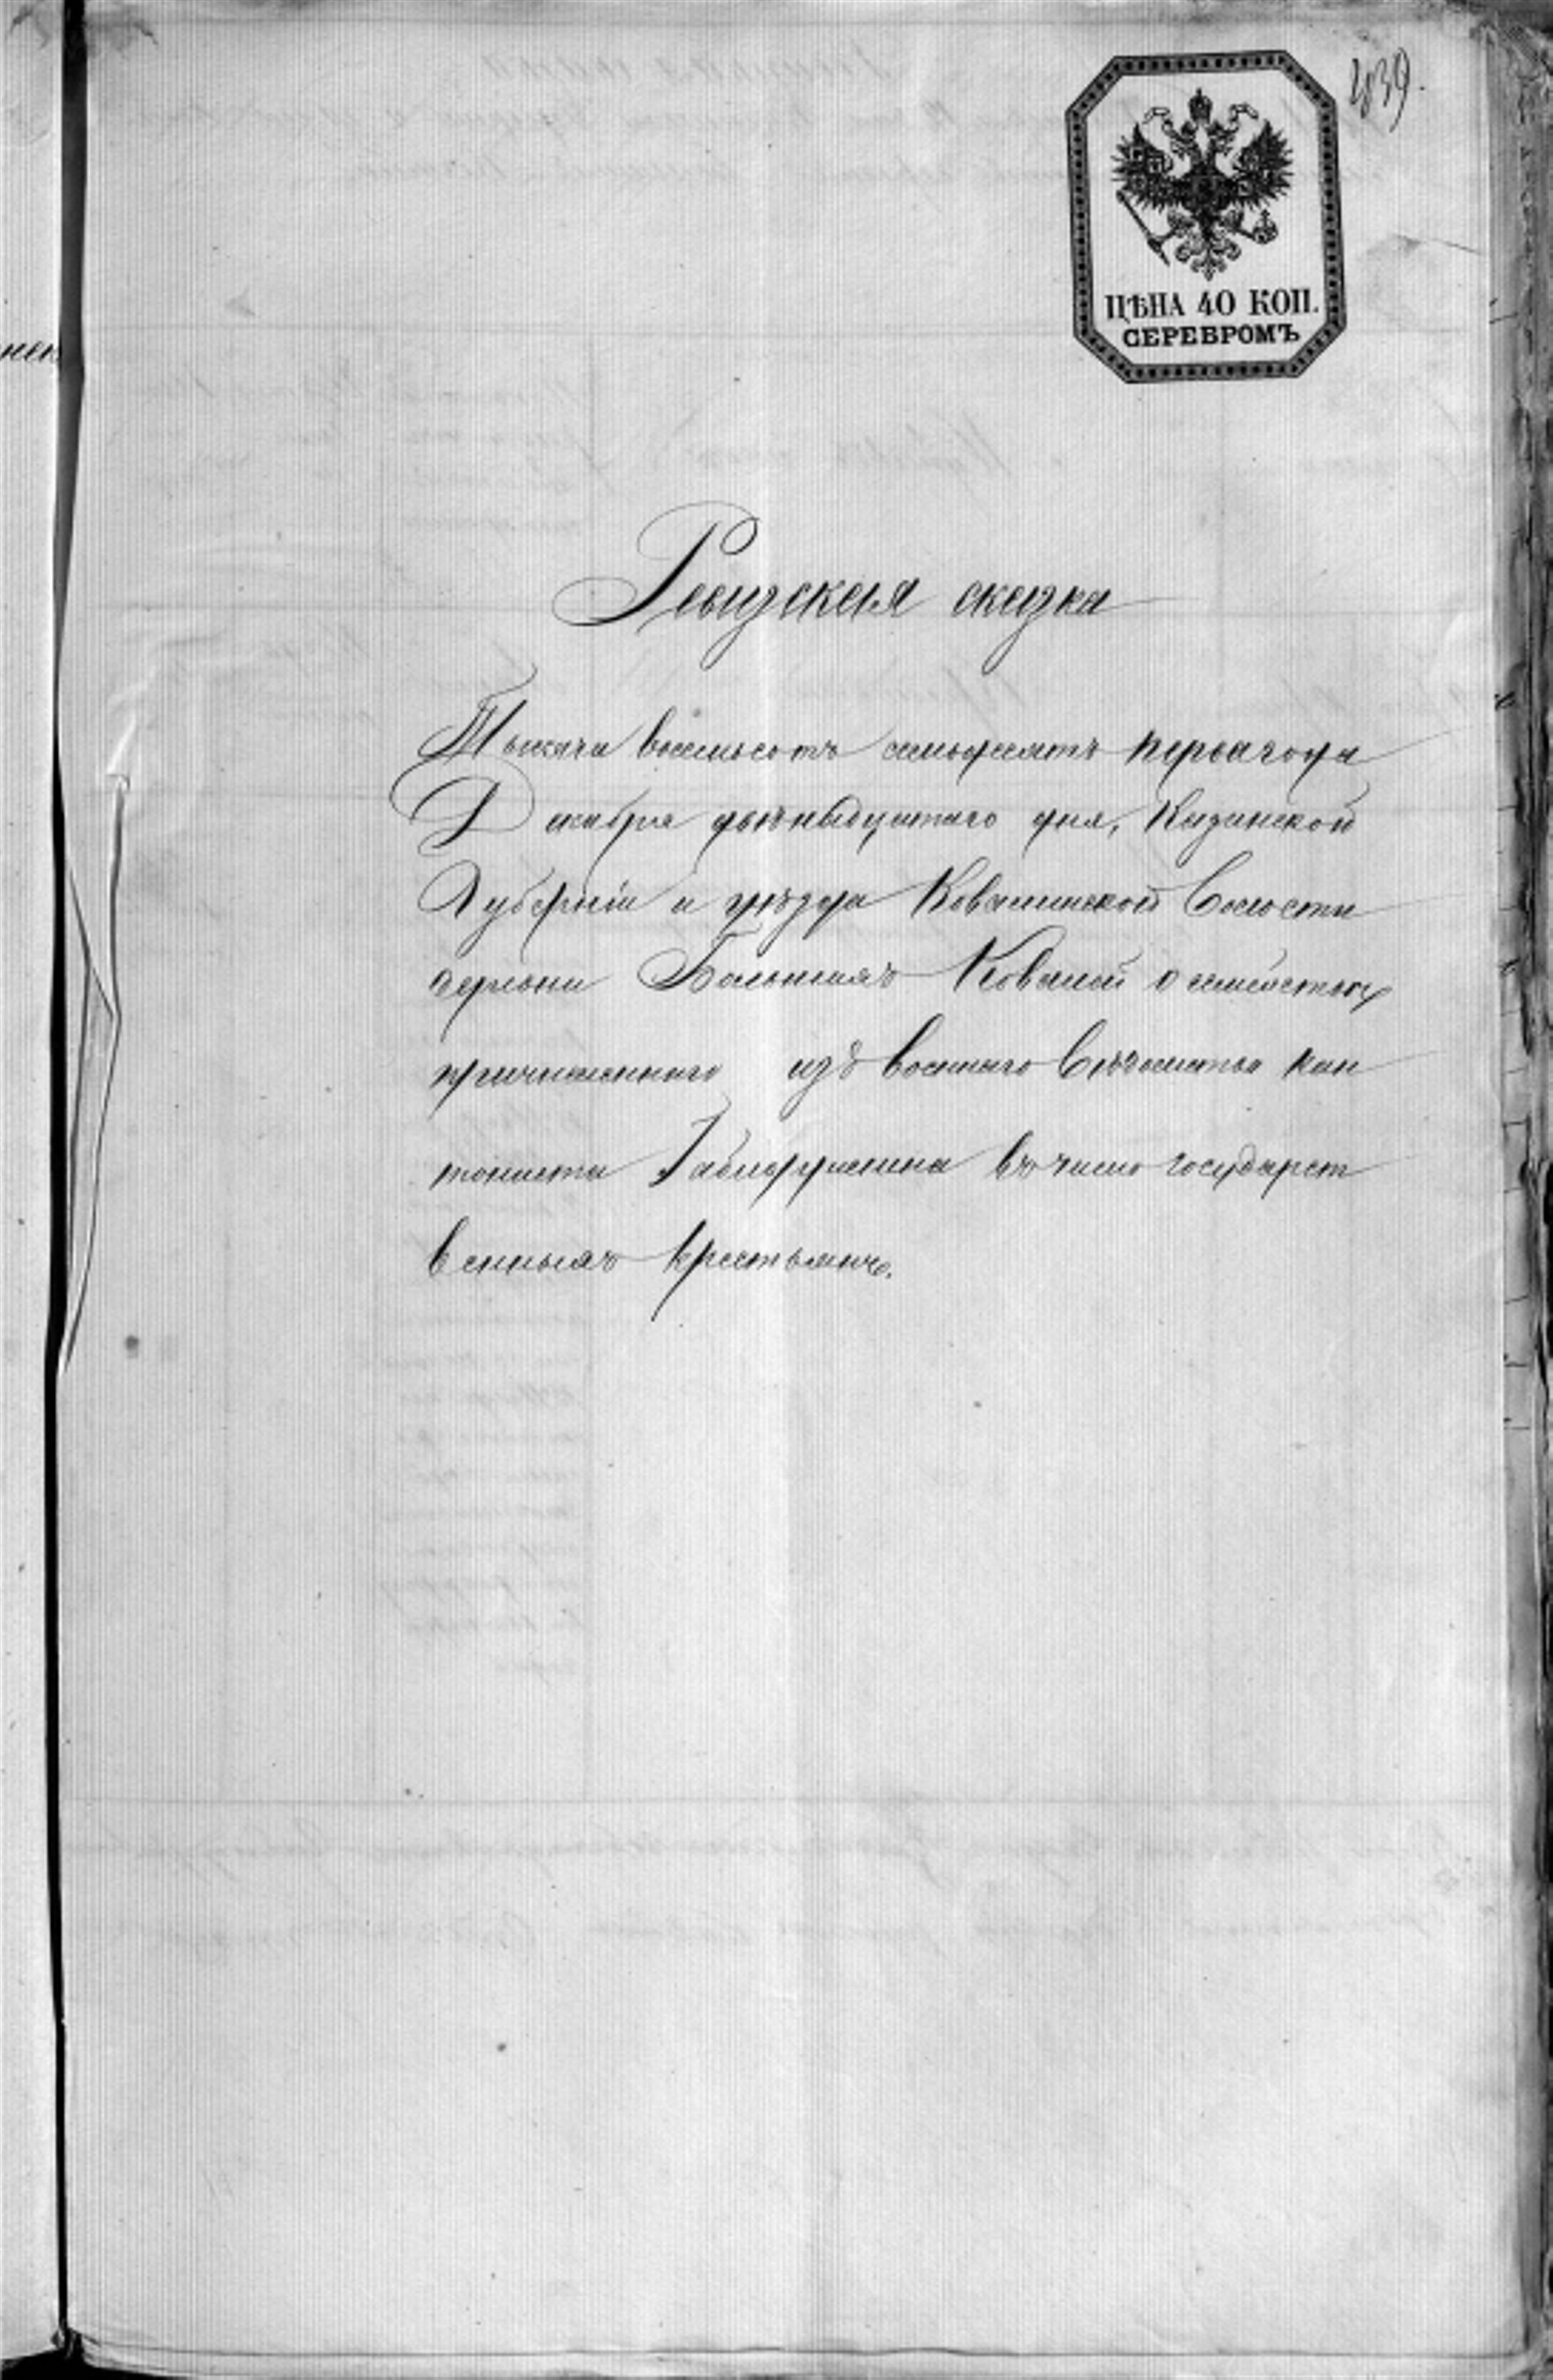 439.
ЦѢНА 40 КОП.
СЕРЕБРОМЪ
Ревизская сказка
Тысяча восемьсотъ семьдесятъ перваго года
Декабря двѣнадцатаго дня, Казанской
Губерніи и уѣзда Ковалинской Волости
деревни Большихъ Ковалей о семействѣ
причисленнаго изъ военнаго вѣдомства кан
тониста въ число государст
венныхъ крестьянъ.